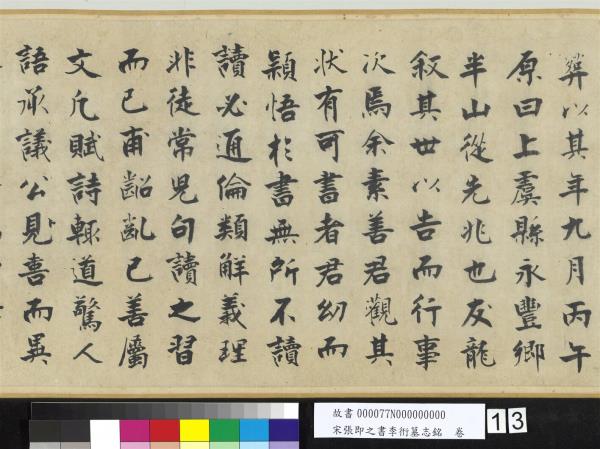 葬以其年九月丙午
原曰上虞縣永豐鄉
半山從先兆也友龍
叙其世以告而行事
次焉余素善君觀其
状有可書者君幼而
穎悟於書無所不讀
讀必通倫類解義理
非徒常児句讀之習
而已甫齠齔已善屬
文凡賦詩輒道驚人
語承議公見喜而異
故書 000077N000000000
宋張即之書李衎墓志銘 卷
13